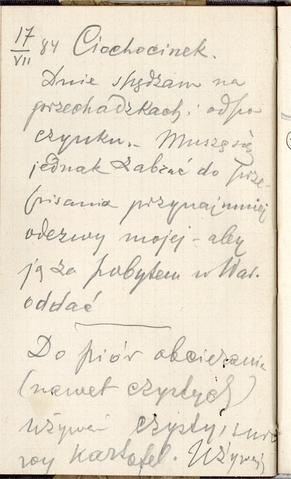 17/VII 84 Ciechocinek.
Dnie spędzam na
przechadzkach i odpo
czynku. Muszę się
jednak zabrać do prze-
pisania przynajmniej
odezwy mojej - aby
ją za pobytem w War.
oddać
Do piór obcierania
(nawet czystych)
używać czysty, suro
wy kartofel. Używaj